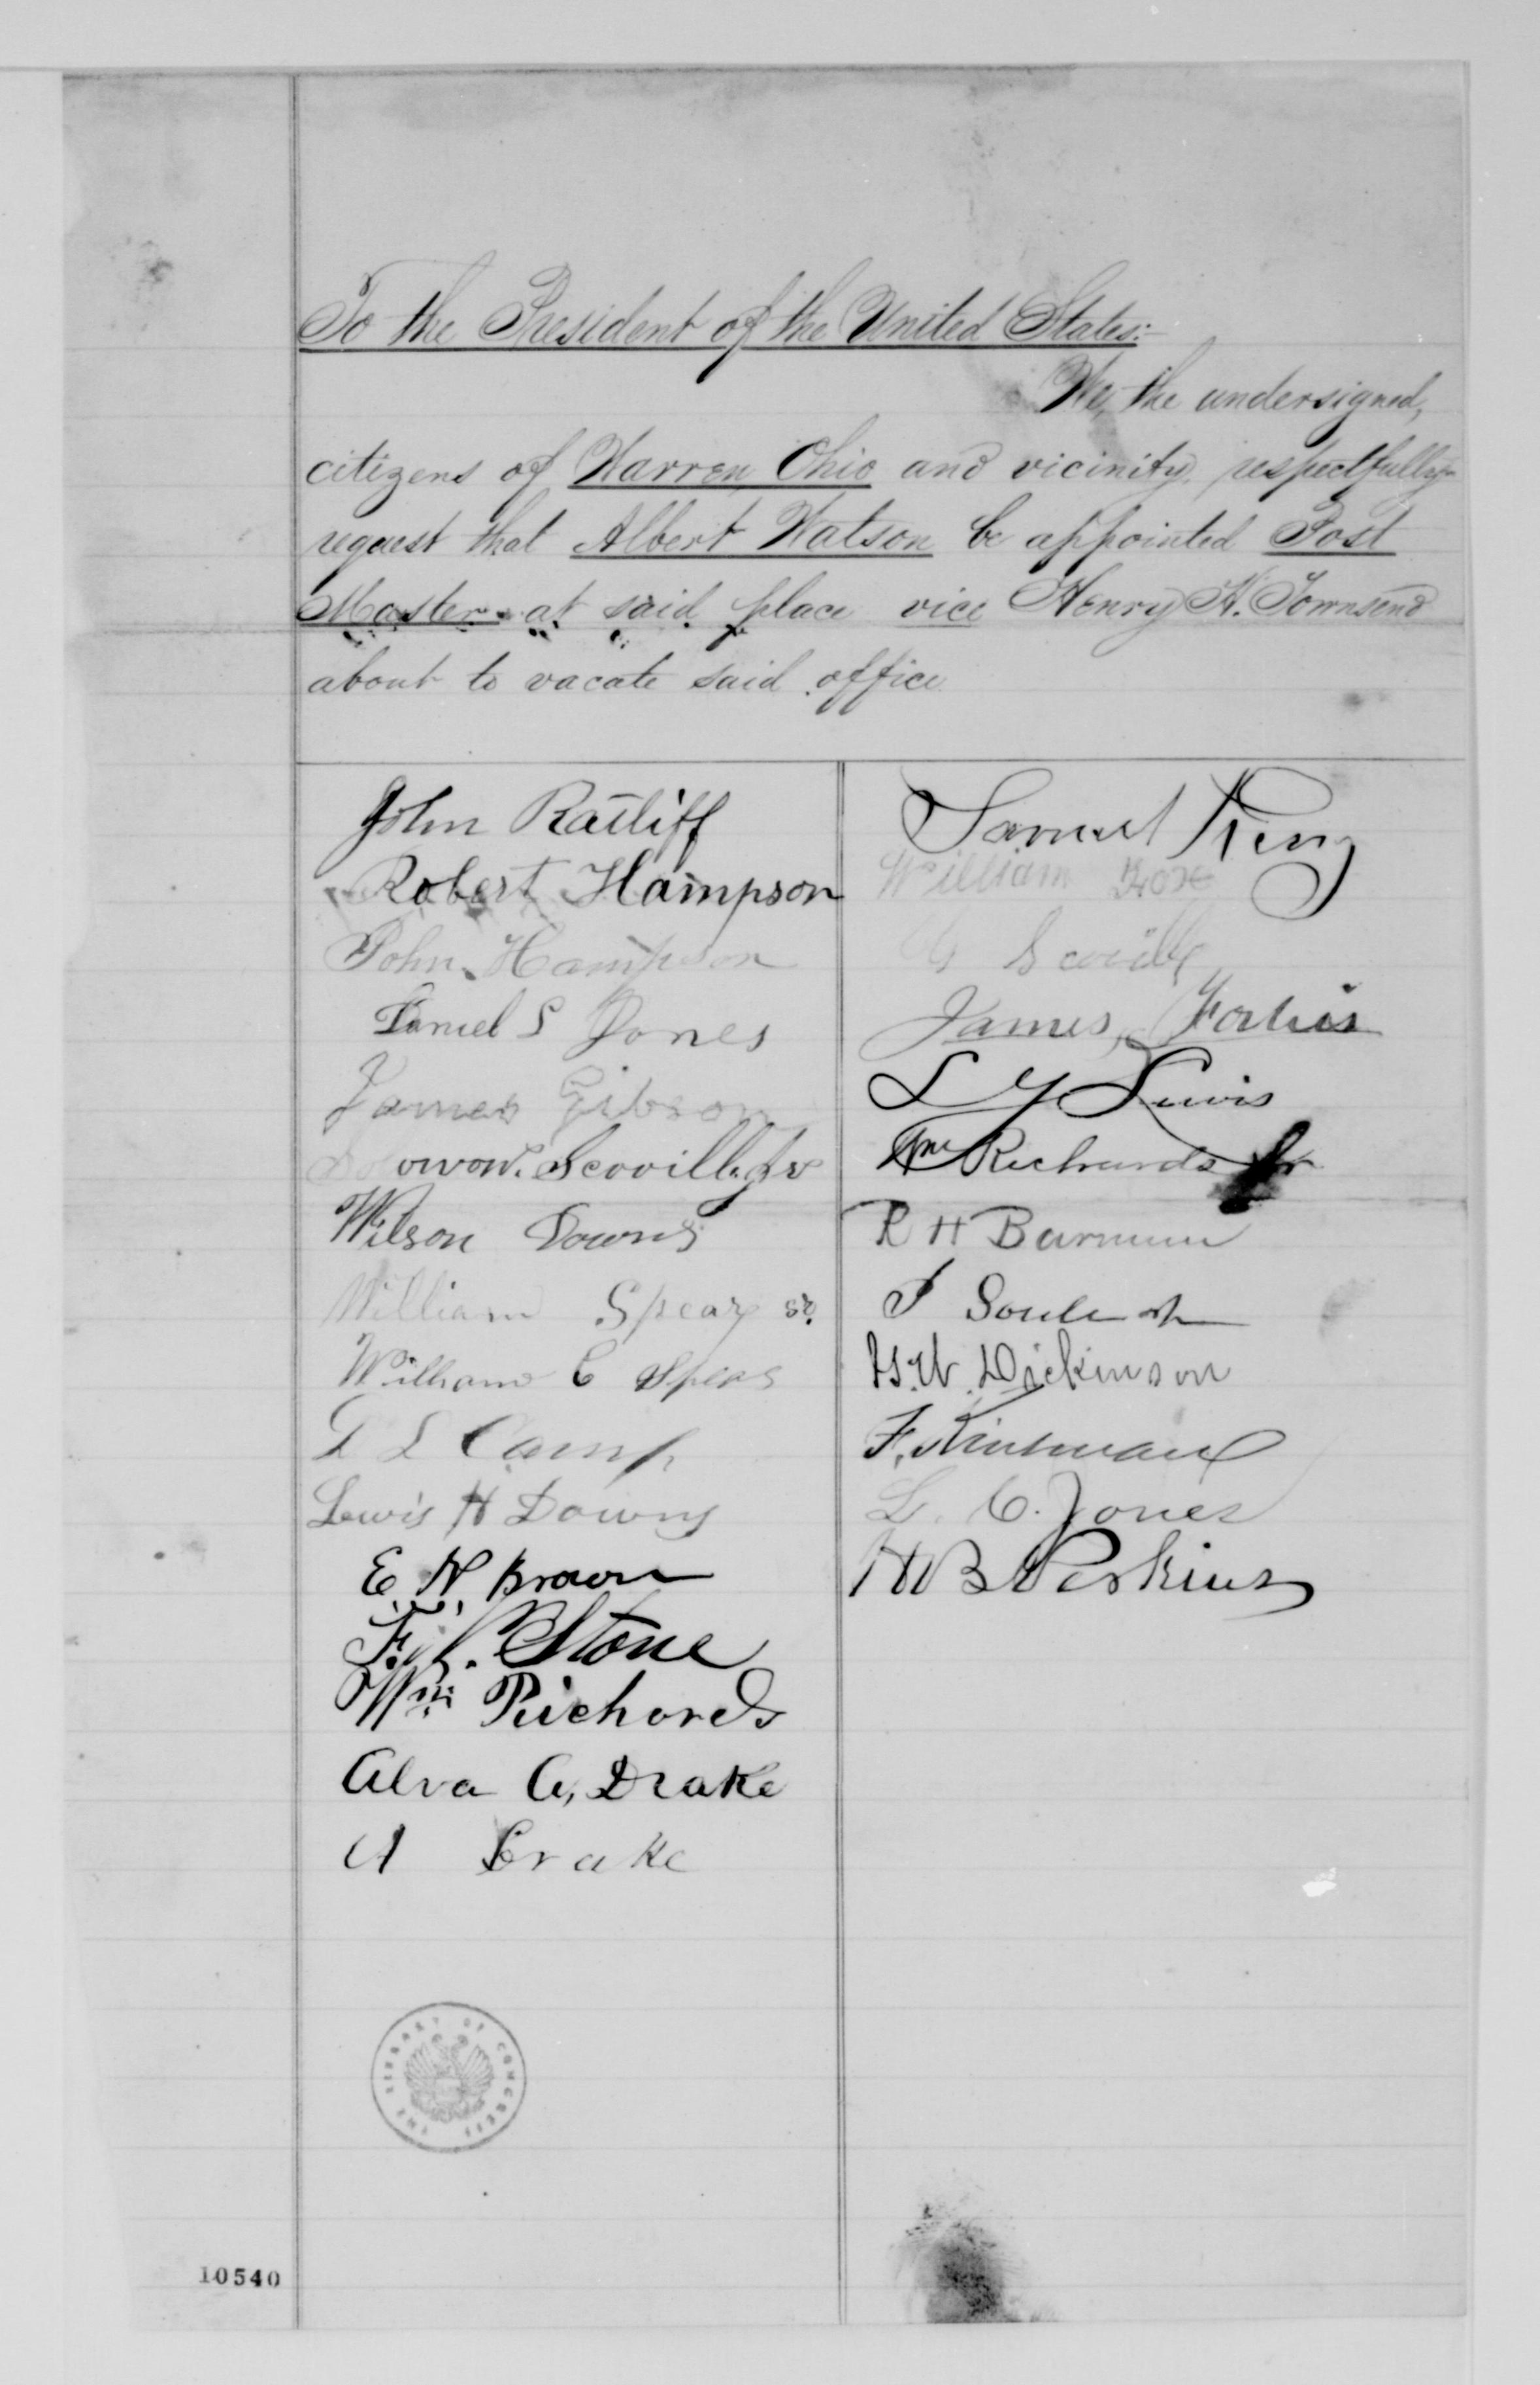 To the President of the United States:
We, the undersigned,
citizens of Warren, Ohio and vicinity, respectfully
request that Albert Watson be appointed Post
Master at said place vice Henry H. Townsend
about to vacate said office
John Ratliff
Robert Hampson
John Hampson
Daniel S Jones
James Gibson
Scovill Jr
Wilson Downs
William Spear sr.
William C Spear
D L Camp
Lewis H Downs
E. N. Brown
F. Stone
Wm Richards
Alva A, Drake
A Drake
Samuel King
William
Scovill
James
L Y Lewis
Wm Richards Jr
R H Barnum
J Soule
Dickinson
F. Kinsman
L. C. Jones
H B Perkins
THE LIBRARY OF CONGRESS
10540